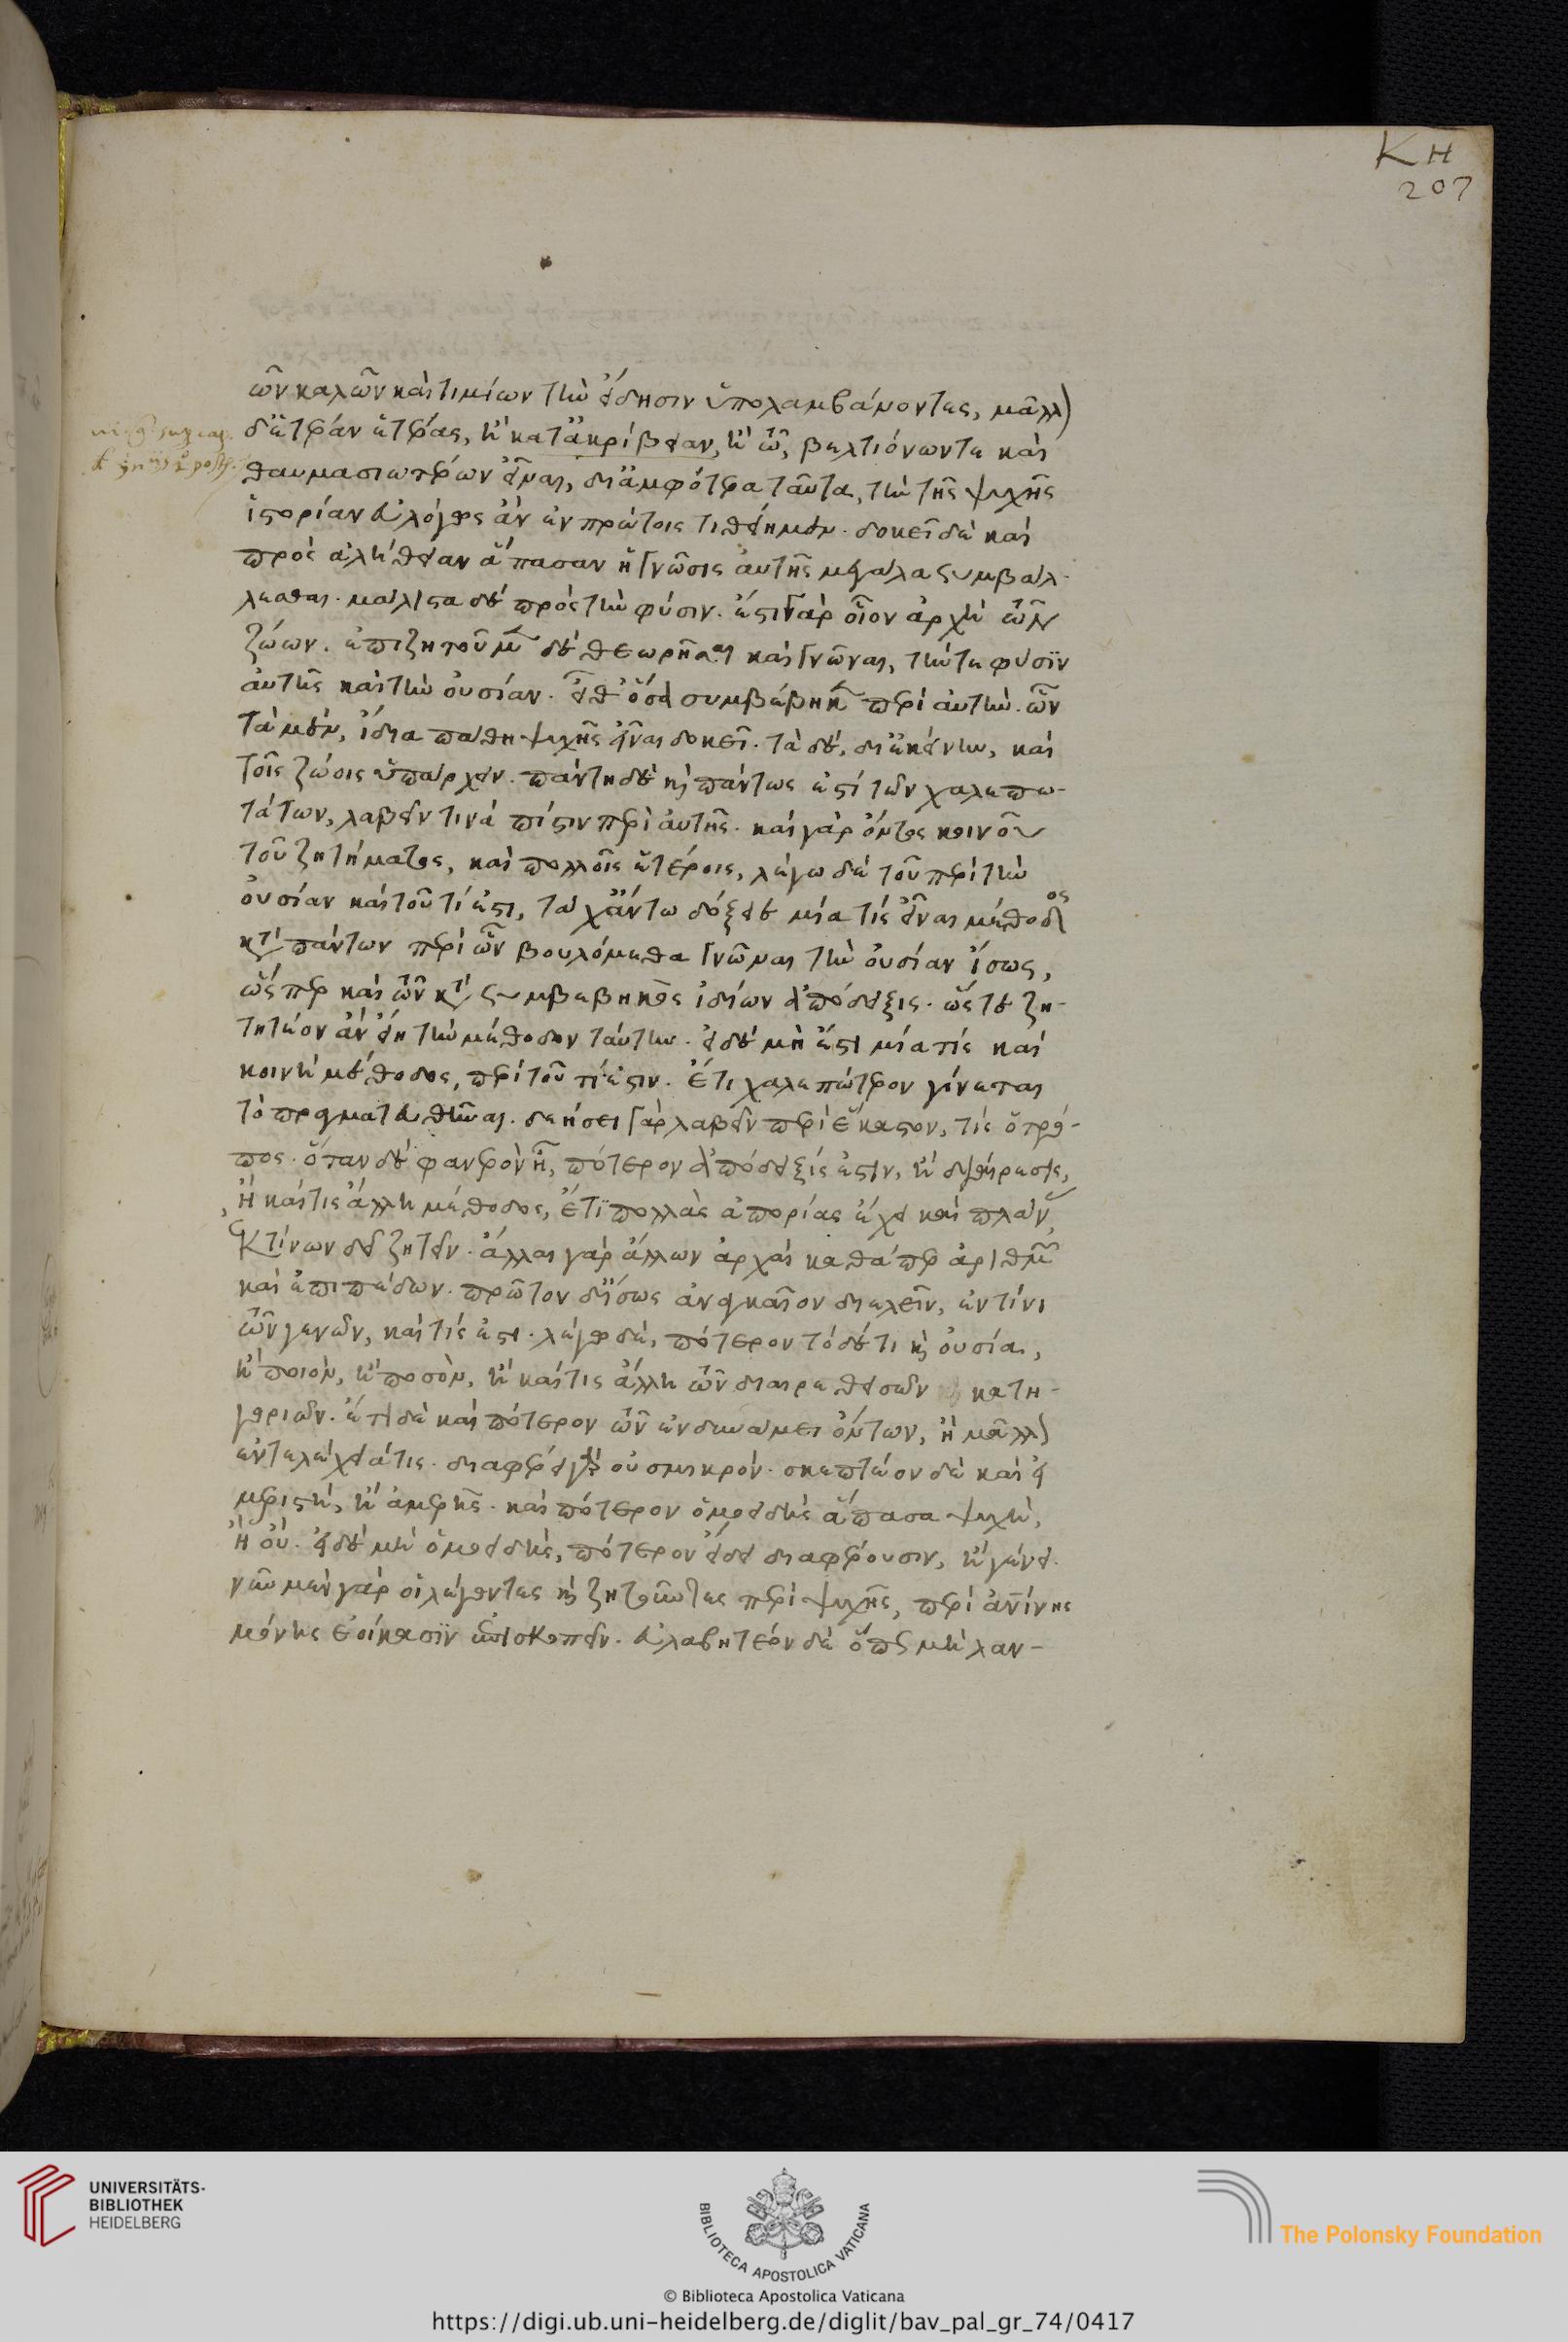 ΚΗ
207
τῶν καλῶν καὶ τιμίων τὴν εἴδησιν ὑπολαμβάνοντες, μᾶλλον
δ' ἑτέραν ἑτέρας, ἢ κατ' ἀκρίβειαν, ἢ τῷ, βελτιόνων τε καὶ
θαυμασιωτέρων εἶναι, δι' ἀμφότερα ταῦτα, τὴν τῆς ψυχῆς
ἱστορίαν εὐλόγως ἂν ἐν πρώτοις τιθείημεν. δοκεῖ δὲ καὶ
πρὸς ἀλήθειαν ἅπασαν ἡ γνῶσις αὐτῆς μεγάλα συμβάλ-
λεσθαι. μάλιστα δὲ πρὸς τὴν φύσιν. ἔστι γὰρ οἷον ἀρχὴ τῶν
ζώων. ἐπιζητοῦμεν δὲ θεωρῆσαι καὶ γνῶναι, τήν τε φύσιν
αὐτῆς καὶ τὴν οὐσίαν. εἶθ' ὅσα συμβέβηκε περὶ αὐτὴν. ὧν
τὰ μὲν, ἴδια πάθη ψυχῆς εἶναι δοκεῖ. τὰ δὲ, δι' ἐκείνην, καὶ
τοῖς ζώοις ὑπάρχειν. πάντη δὲ καὶ πάντως ἐστὶ τῶν χαλεπω-
τάτων, λαβεῖν τινὰ πίστιν περὶ αὐτῆς. καὶ γὰρ ὄντος κοινοῦ
τοῦ ζητήματος, καὶ πολλοῖς ἑτέροις, λέγω δὲ τοῦ περὶ τὴν
οὐσίαν καὶ τοῦ τί ἐστι, τάχ' ἄν τω δόξειε μία τίς εἶναι μέθοδος
κατὰ πάντων περὶ ὧν βουλόμεθα γνῶναι τὴν οὐσίαν ἴσως,
ὥσπερ καὶ τῶν κατὰ συμβεβηκὸς ἰδίων ἀπόδειξις. ὥστε ζη-
τητέον ἂν εἴη τὴν μέθοδον ταύτην. εἰ δὲ μὴ ἔστι μία τίς καὶ
κοινὴ μέθοδος, περὶ τοῦ τί ἐστιν. ἔτι χαλεπώτερον γίνεται
τὸ πραγματευθῆναι. δεήσει γὰρ λαβεῖν περὶ ἕκαστον, τίς ὁ τρό-
πος. ὅταν δὲ φανερὸν ᾖ, πότερον ἀπόδειξίς ἐστιν, ἢ διαίρεσις,
ἢ καί τις ἄλλη μέθοδος, ἔτι πολλὰς ἀπορίας ἔχει καὶ πλάνας
ἐκ τίνων δεῖ ζητεῖν. ἄλλαι γὰρ ἄλλων ἀρχαὶ καθάπερ ἀριθμῶν
καὶ ἐπιπέδων. πρῶτον δ' ἴσως ἀναγκαῖον διελεῖν, ἐν τίνι
τῶν γενῶν, καὶ τίς ἐστι. λέγω δὲ, πότερον τόδε τι καὶ οὐσία,
ἢ ποιὸν, ἢ ποσὸν, ἢ καί τις ἄλλη τῶν διαιρεθεισῶν κατη-
γοριῶν. ἔτι δὲ καὶ πότερον τῶν ἐν δυνάμει ὄντων, ἢ μᾶλλον
ἐντελέχειά τις. διαφέρει γὰρ οὐ σμικρόν. σκεπτέον δὲ καὶ εἰ
μεριστὴ, ἢ ἀμερὴς. καὶ πότερον ὁμοειδὴς ἅπασα ψυχὴ,
ἢ οὔ. εἰ δὲ μὴ ὁμοειδὴς, πότερον εἴδει διαφέρουσιν, ἢ γένει.
νῦν μὲν γὰρ οἱ λέγοντες καὶ ζητοῦντες περὶ ψυχῆς, περὶ ἀνίνης
μόνης ἐοίκασιν ἐπισκοπεῖν. εὐλαβητέον δὲ ὅπως μὴ λαν-
UNIVERSITÄTS-
BIBLIOTHEK
HEIDELBERG
BIBLIOTECA APOSTOLICA VATICANA
© Biblioteca Apostolica Vaticana
The Polonsky Foundation
https://digi.ub.uni-heidelberg.de/diglit/bav_pal_gr_74/0417